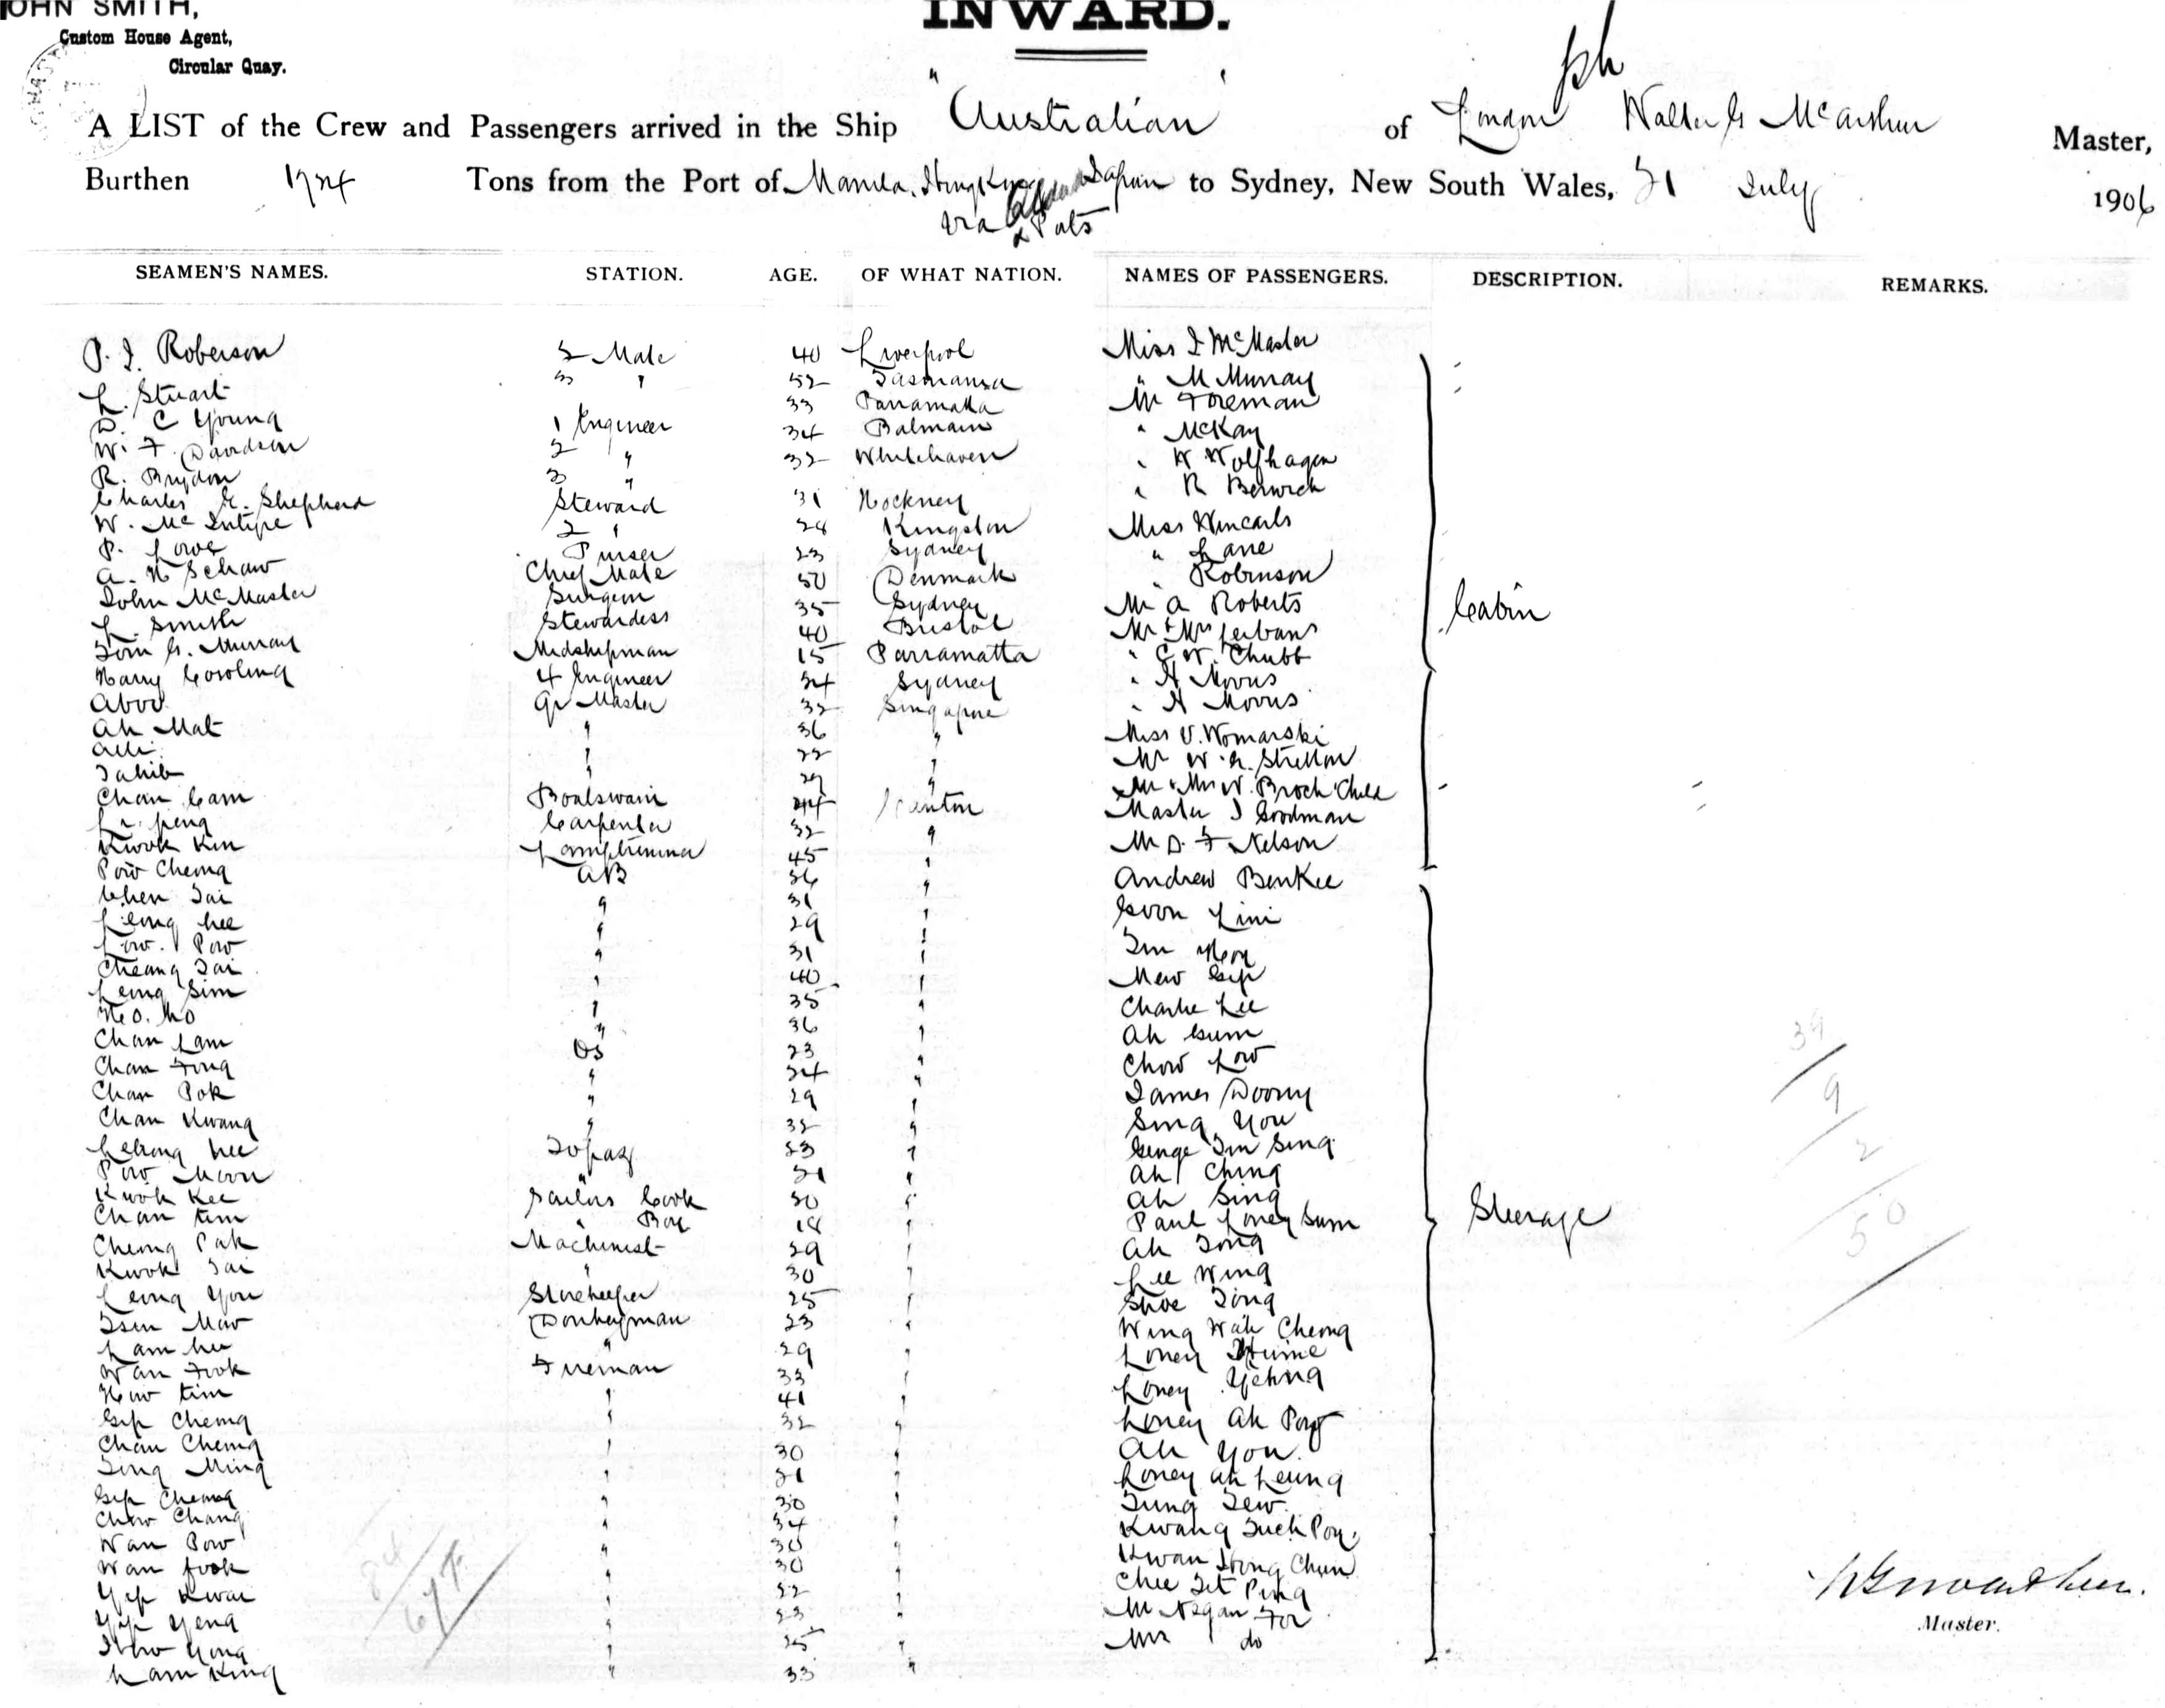 JOHN SMITH,
Custom House Agent,
Circular Quay.
INWARD.
A LIST of the Crew and Passengers arrived in the Ship "Australian" of London Walter G McArthur Master,
Burthen 1724 Tons from the Port of Manila, Hong Kong Japan to Sydney, New South Wales, 21 July 1906
via & Ports
SEAMEN'S NAMES. STATION. AGE. OF WHAT NATION. NAMES OF PASSENGERS. DESCRIPTION. REMARKS.
Roberson 2 Mate 40 Liverpool Miss I McMaster
L. Stuart 3 " 52 Tasmania " M Murray
D. C Young 1 Engineer 33 Parramatta Mr Foreman
W. F. Davidson 2 " 34 Balmain " McKay
R. Brydon 3 " 32 Whitehaven " W Wolfhagen
Charles G. Shepherd Steward 31 Hockney " R Berwick
W. McIntyre 2 " 28 Kingston Miss
P. Lowe Purser 23 Sydney " Lane
A. H Schaw Chief Mate 50 Denmark " Robinson
John McMaster Surgeon 35 Sydney Mr A Roberts
L. Smith Stewardess 40 Bristol Mr & Mrs
Tom G. Murray Midshipman 15 Parramatta " C W. Chubb
Harry Cowling 4 Engineer 24 Sydney " A Morris
Aboo Qr Master 32 Singapore " A Morris
Ah Mat " 36 " Miss V. Womarski
Alli " 22 " Mr W. G. Stretton
Sahib " 29 " Mr & Mrs W. Broch & Child
Chan Cam Boatswain 44 Canton Master J Goodman
Carpenter 32 " Mr D. F Nelson
Kwok Kin Lamptrimmer 45 "
Pow Cheong AB 36 " Andrew BenKee
Chen Tai " 31 " Goon Lim
Leong Chee " 29 "
Low. Pow " 31 " Mew Gip
Cheang Tai " 40 " Charlie Lee
Leong Sim " 35 " Ah Gum
Ho. Ho " 36 " Chow Low
Chan Lam OS 23 " James Doony
Chan Fong " 24 " Sing You
Chan Pok " 29 " George Tim Sing
Chan Kwang " 32 " Ah Ching
Topaz 23 " Ah Sing
Pow Moon " 21 " Paul Loney Sum
Kwok Kee Sailors Cook 30 " Ah Tong
Chan Kim " Boy 18 " Lee Wing
Cheong Pak Machinist 29 " Shoe Ting
Kwok Tai " 30 " Wing Wah Cheong
Leong You Storekeeper 25 " Loney
Mow Donkeyman 23 " Loney
Lam " 29 " Loney Ah Pow
Wan Fook Fireman 33 " Ah You
How Kim " 41 " Loney Ah Leung
Gip Cheong " 32 " Tung Tew
Chan Cheong " 30 " Kwang
Ting Ming " 21 " Kwan Hong Chun
Gip Cheong " 30 " Chee Tit Ping
Chow Chang " 34 Mr For
Wan Pow " 30 " Mrs do
Wan Fook " 30 "
Yip Kwai " 22 "
Yip Yeng " 23 "
Yong " 25 "
Lam King " 33 "
Cabin
Steerage
39
9
2
50
84
674
Master.